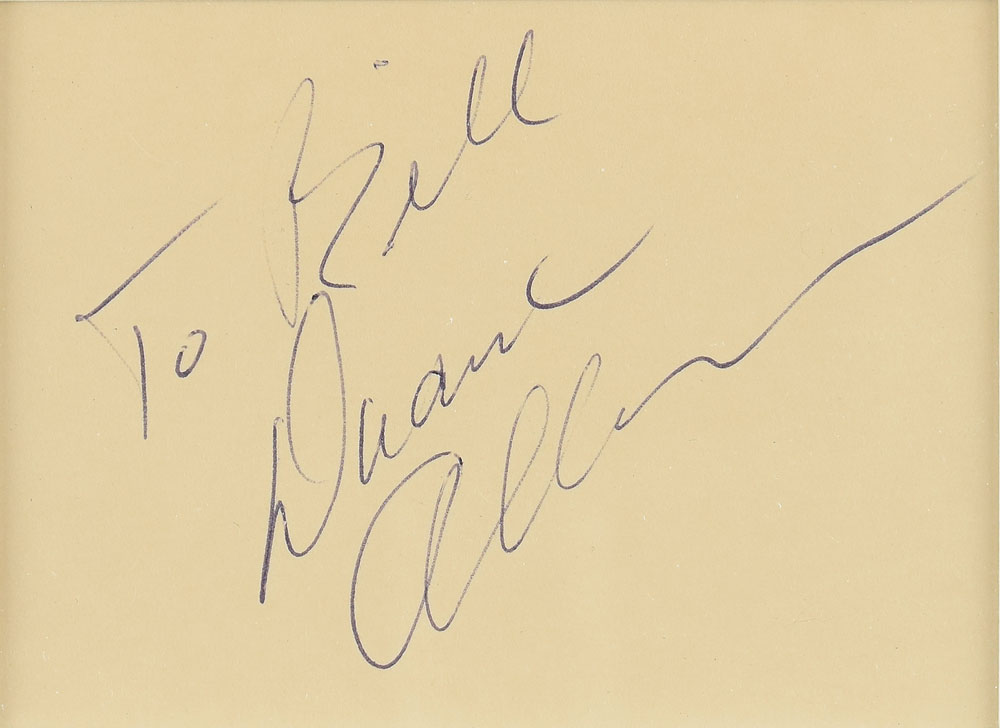 To Bill
Duane
Allman